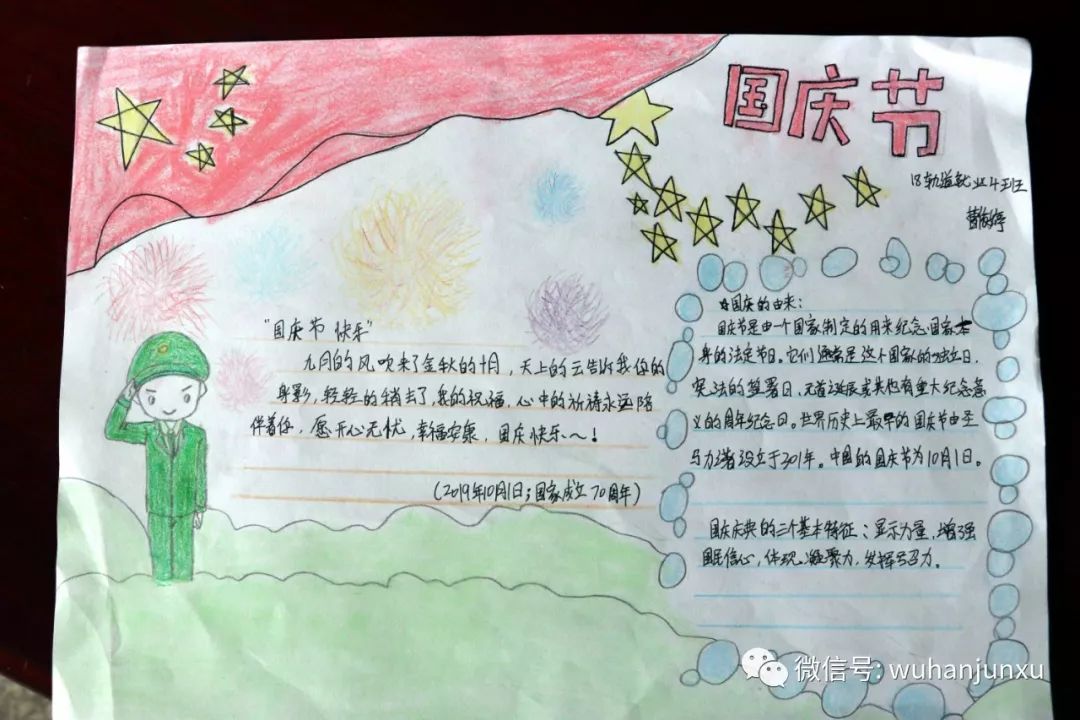 国庆节
18轨道就业4班
"国庆节 快乐"
九月的风吹来了金秋的十月，天上的云告诉我你的
身影，轻轻的稍去了我的祝福，心中的祈祷永远陪
伴着你，愿开心无忧，幸福安康，国庆快乐～！
(2019年10月1日；国家成立70周年)
☆国庆的由来：
国庆节是由一个国家制定的用来纪念国家本
身的法定节日。它们通常是这个国家的独立日、
宪法的签署日、元首诞辰或其他有重大纪念意
义的周年纪念日。世界历史上最早的国庆节由圣
马力诺设立于301年。中国的国庆节为10月1日。
国庆庆典的三个基本特征：显示力量，增强
国民信心，体现凝聚力，发挥号召力。
微信号: wuhanjunxu